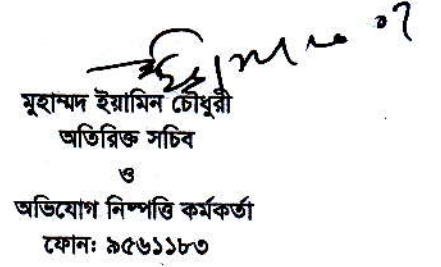 মুহাম্মদ ইয়ামিন চৌধুরী
অতিরিক্ত সচিব
ও
অভিযোগ নিষ্পত্তি কর্মকর্তা
ফোনঃ ৯৫৬১১৮৩